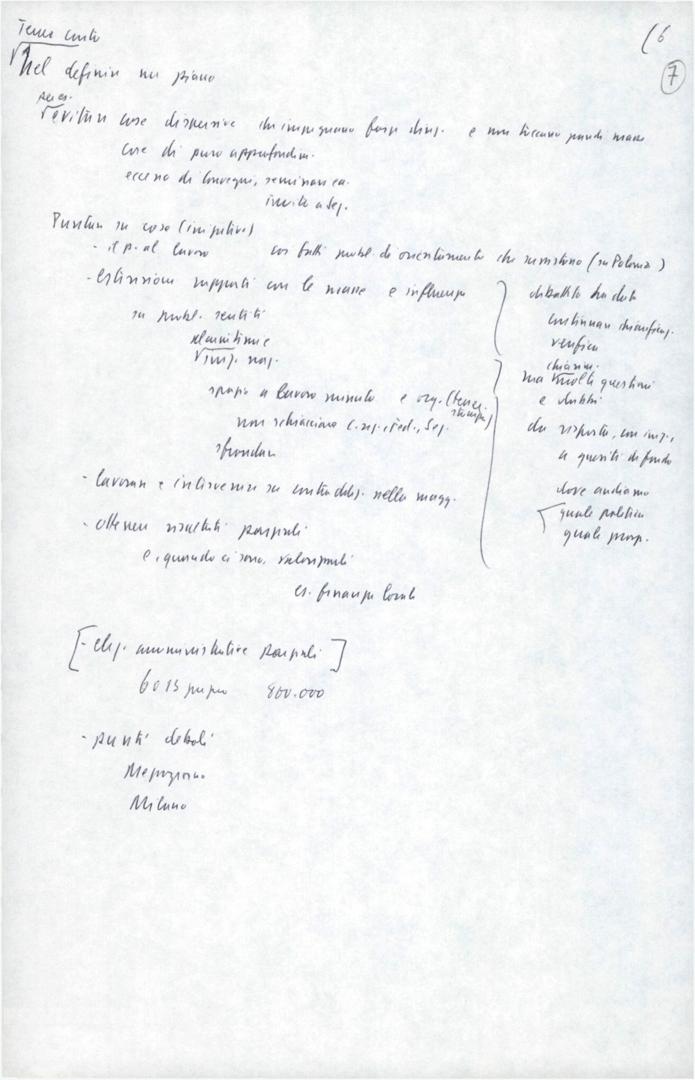 Tener conto
(6
7
Nel definire un piano
per es.
evitare cose dispersive che impegnano forze dirig. e non toccano grandi masse
cose di puro approfondim.
eccesso di convegni, seminari ecc.
invito a Seg.
Puntare su cose (iniziative)
- il p. al lavoro
con tutti probl. di orientamento che sussistono (su Polonia)
- estensione rapporti con le masse e influenza
su probl. sentiti
iniz. naz.
spazio a lavoro minuto e org. (tess. stampa)
non schiacciare C. reg., Fed., Seg.
sfondare
dibattito ha dato
continuare chiarificaz.
verifica
chiarim.
ma molte questioni
e dubbi
da risposta, con iniz.,
a quesiti di fondo
dove andiamo
quale politica
quale prosp.
- lavorare e intervenire su contraddiz. nella magg.
- ottenere risultati parziali
e, quando ci sono, valorizzarli
es. finanza locale
[- elez. amministrative parziali]
6 o 13 giugno 800.000
- punti deboli
Mezzogiorno
Milano